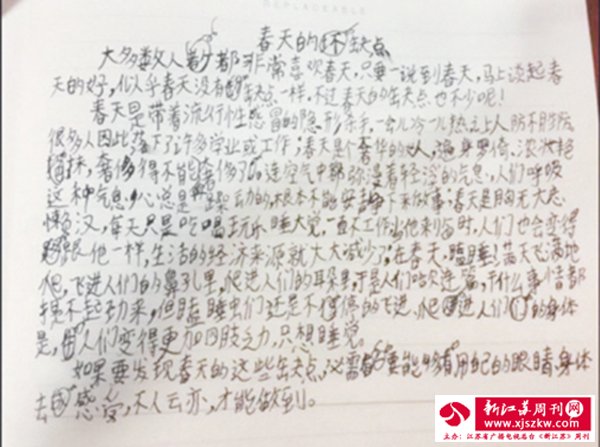 春天的坏缺点
大多数人都非常喜欢春天，只要一说到春天，马上谈起春
天的好，似乎春天没有缺点一样，不过春天的缺点也不少呢！
春天是带着流行性感冒的隐形杀手，一会儿冷一儿热让人防不胜防
很多人因此落下了许多学业或工作；春天是个奢华的人，遍身罗绮、浓妆艳
抹，奢侈得不能奢侈了。连空气中都弥漫着轻浮的气息，人们呼吸
这种气息，心总是动的根本不能安静下来做事；春天是胸无大志
懒汉，每天只是吃喝玩乐睡大觉，一直不工作当他来到各时，人们也会变得
跟他一样，生活的经济来源就大大减少了；在春天，瞌睡虫满天飞满地
爬，飞进人们的鼻孔里，爬进人们的耳朵里，于是人们哈欠连篇，干什么事情都
提不起劲来，但瞌睡虫们还是不停的飞进、爬进人们的身体
是，人们变得更加四肢乏力，只想睡觉。
如果要发现春天的这些缺点，必需要能够用自己的眼睛、身体
去感受，不人云亦，才能做到。
新江苏周刊网
www.xjszkw.com
主办：江苏省广播电视总台《新江苏》周刊